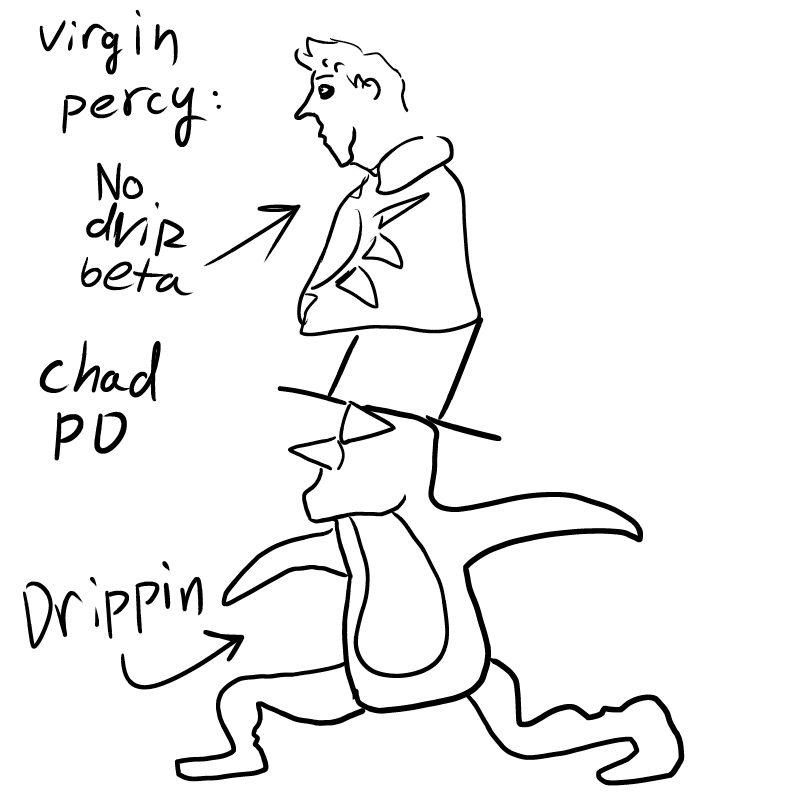 virgin
percy:
No
drip
beta
chad
PD
Drippin